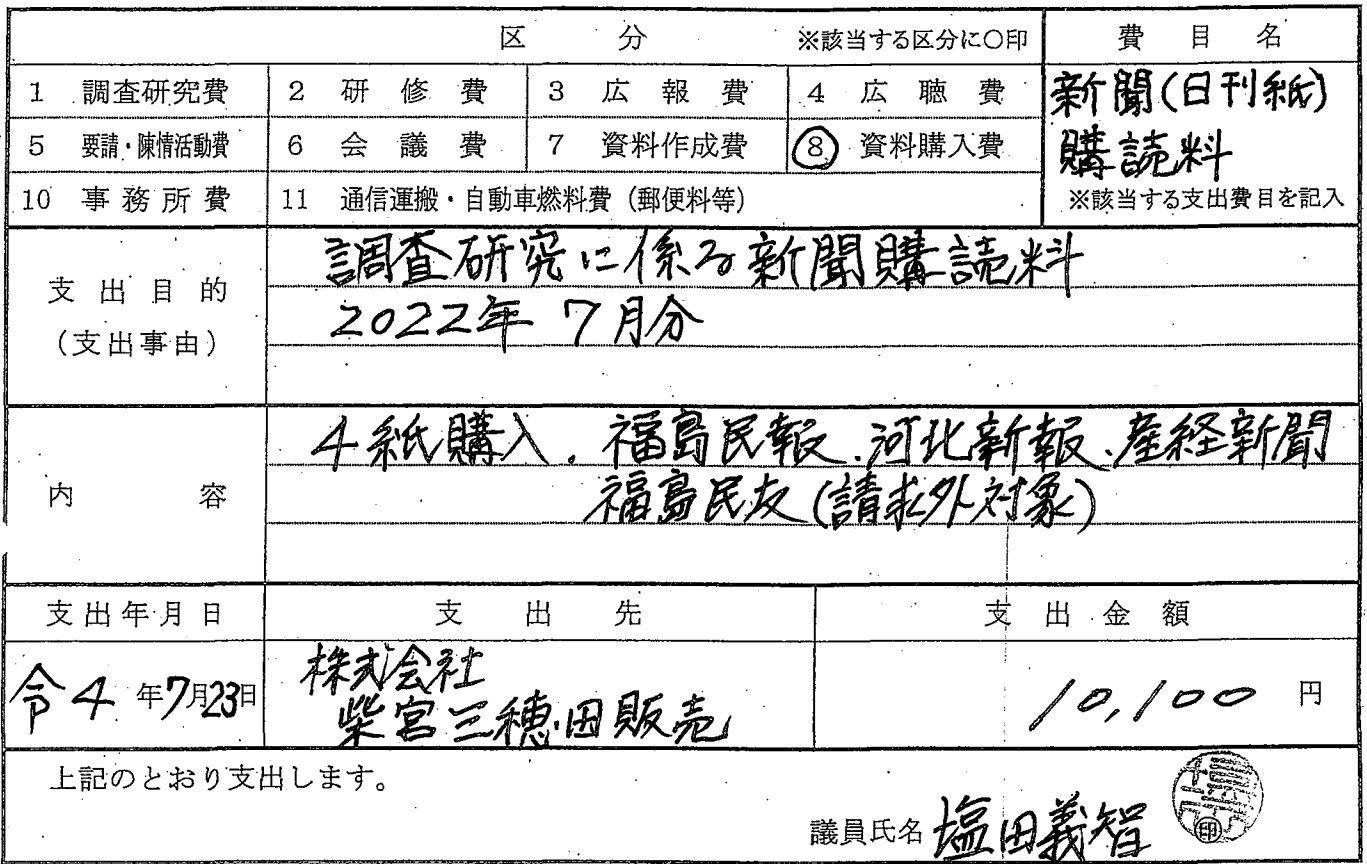 区 分 ※該当する区分に〇印 費目名
1 調査研究費 2 研修費 3 広報費 4 広聴費 新聞(日刊紙)
5 要請・陳情活動費 6 会議費 7 資料作成費 ⑧ 資料購入費 購読料
10 事務所費 11 通信運搬・自動車燃料費(郵便料等) ※該当する支出費目を記入
支出目的
(支出事由)
調査研究に係る新聞購読料
2022年 7月分
内容
4紙購入、福島民報、河北新報、産経新聞
福島民友(請求外対象)
支出年月日 支出先 支出金額
令4年7月23日
株式会社
柴宮三穂田販売
10,100円
上記のとおり支出します。
議員氏名 塩田義智 印